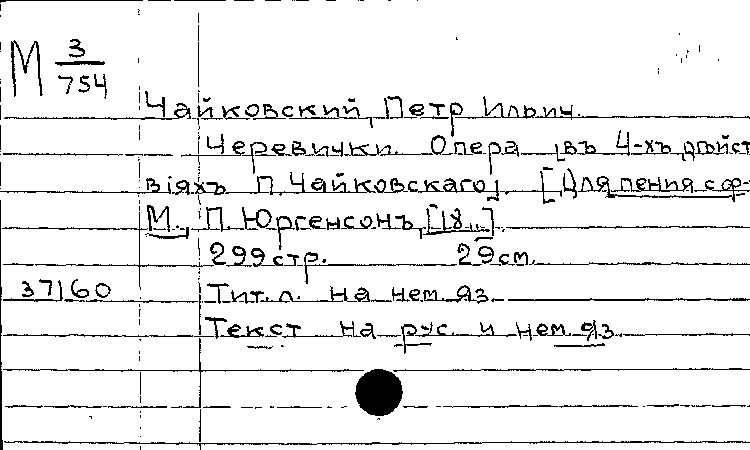 М 3/754
Чайковский, Петр Ильич.
Черевички. Опера [въ 4-хъ дѣйст
віяхъ П. Чайковскаго]. [Для пения с ф-
М., П. Юргенсонъ, [18...].
299 стр. 29 см.
37160 Тит. л. на нем. яз.
Текст на рус. и нем. яз.